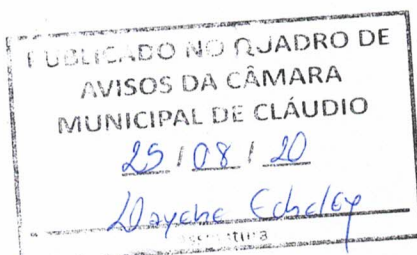 PUBLICADO NO QUADRO DE
AVISOS DA CÂMARA
MUNICIPAL DE CLÁUDIO
25 / 08 / 20
Assinatura